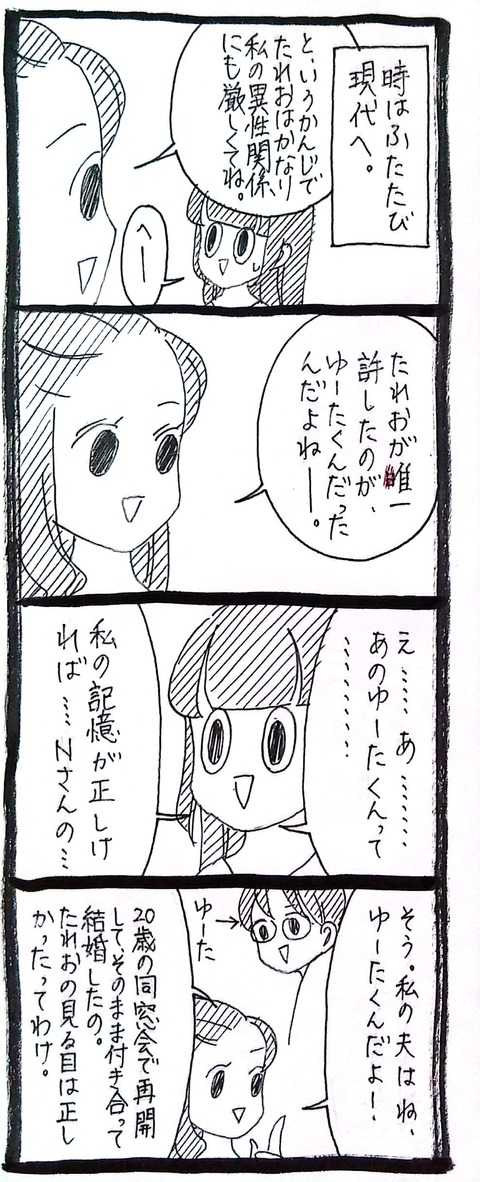 時はふたたび
現代へ。
と、いうかんじで
たれおはかなり
私の異性関係、
にも厳しくてね。
へー
たれおが唯一
許したのが、
ゆーたくんだった
んだよねー。
え……あ………
あのゆーたくんって
………
私の記憶が正しけ
れば……Nさんの…
そう。私の夫はね、
ゆーたくんだよ!
ゆーた
20歳の同窓会で再開
して、そのまま付き合って
結婚したの。
たれおの見る目は正し
かったってわけ。